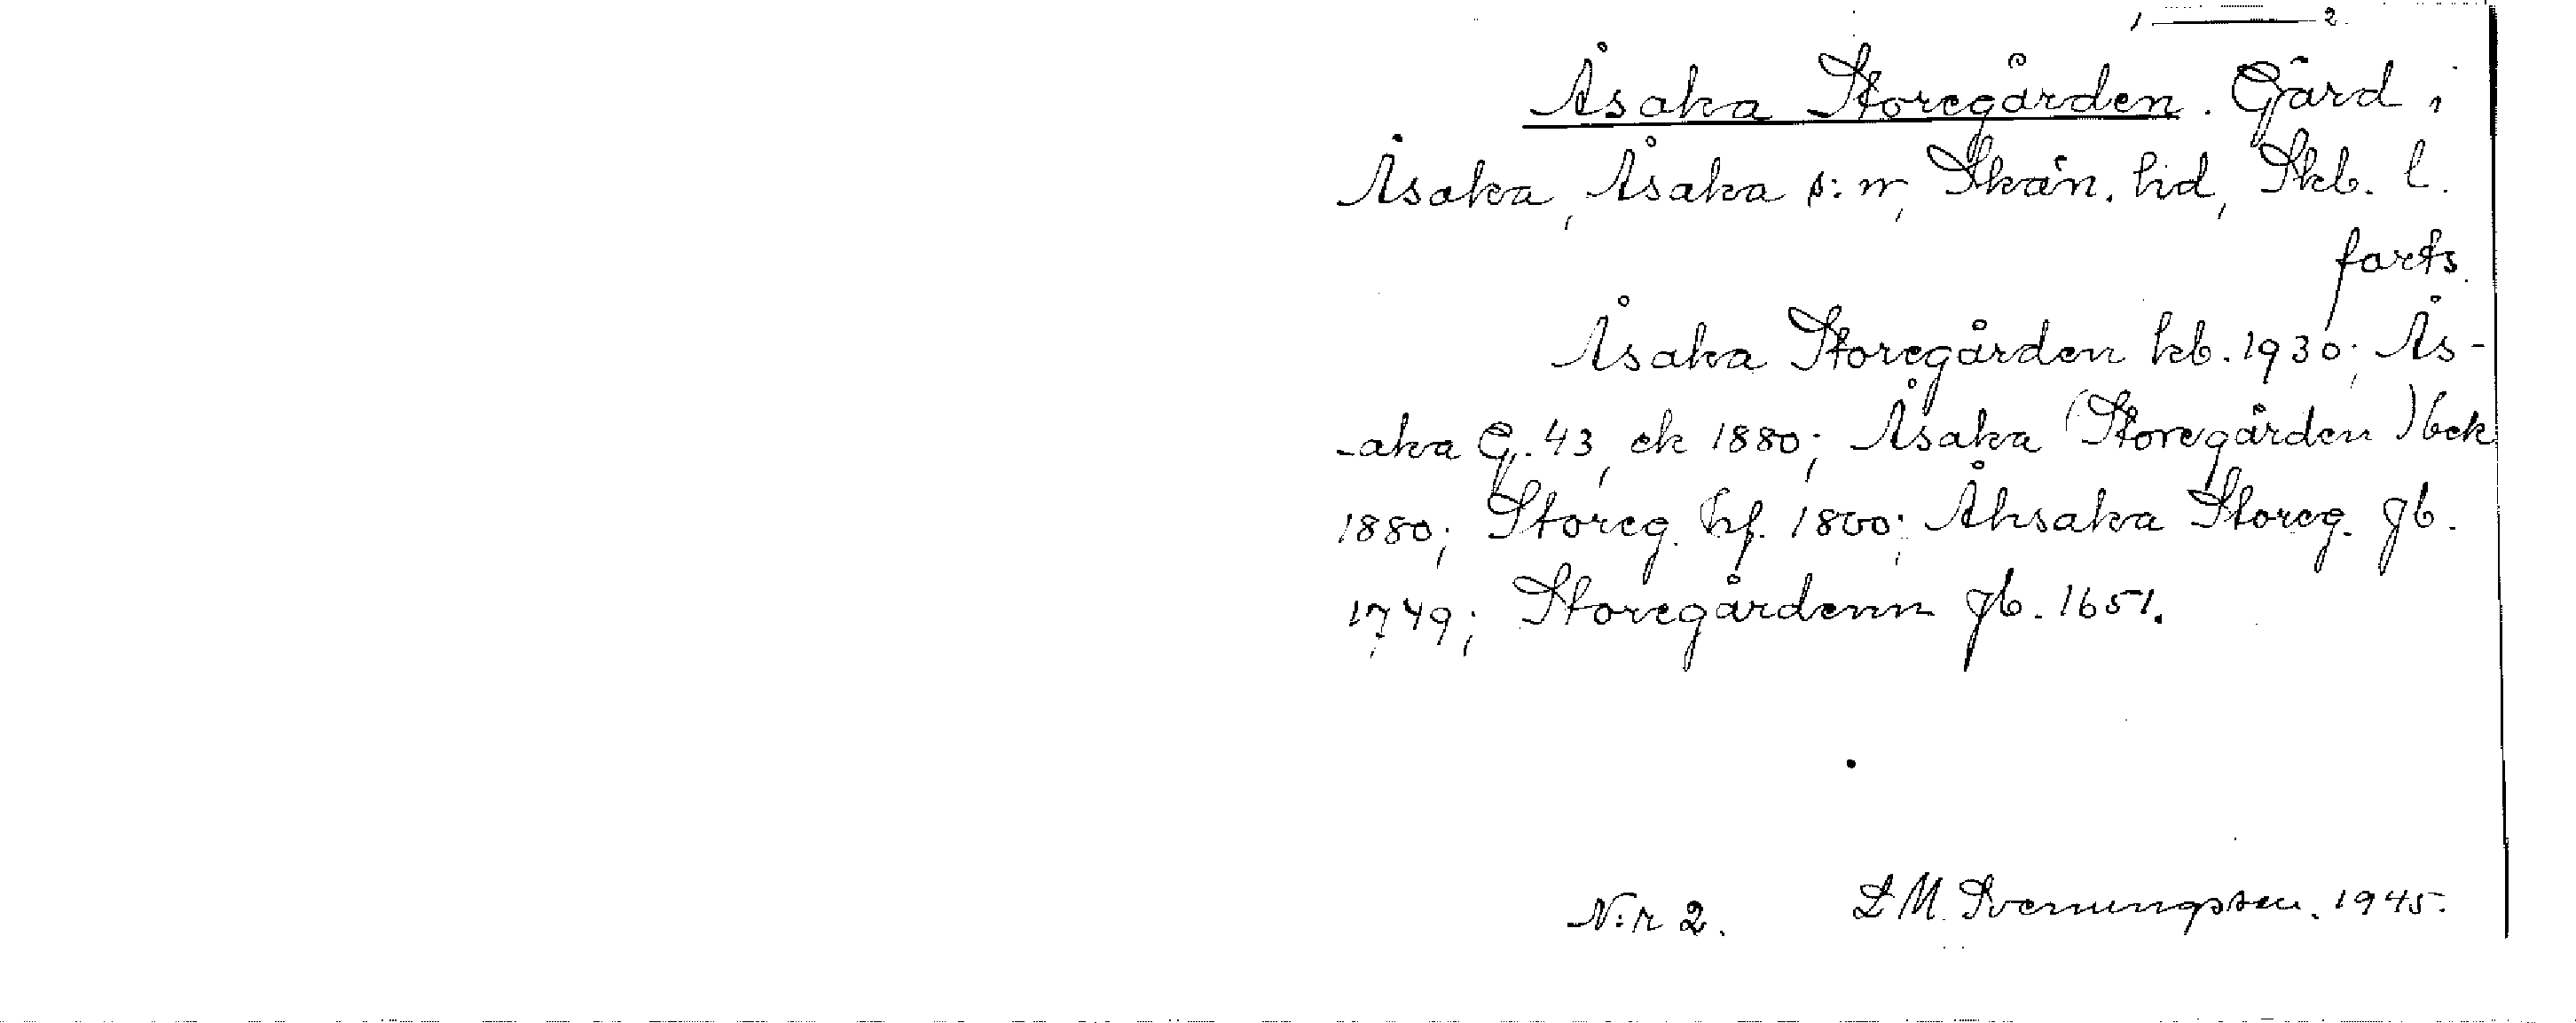 1 — 2
Åsaka Storegården. Gård i
Åsaka, Åsaka s:n, Skån. hd, Skb. l.
forts.
Åsaka Storegården hb. 1930; Ås-
-aka G. 43, ek 1880; Åsaka (Storegården) bek
1880; Storeg. hf. 1800; Åhsaka Storeg. jb.
1749; Storegårdenn jb. 1651.
N:r 2. L M. Svenungsson. 1945.